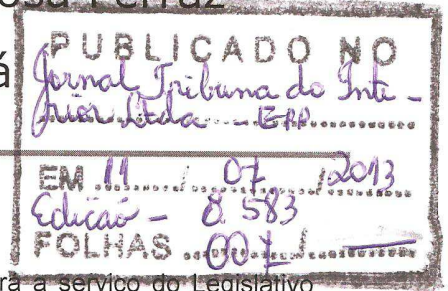 osa Ferraz
á
PUBLICADO NO
Jornal Tribuna do Inte-
rior Ltda - EPP
EM 11 / 07 / 2013
Edição - 8.583
FOLHAS 007 / —
rá a serviço do Legislativo